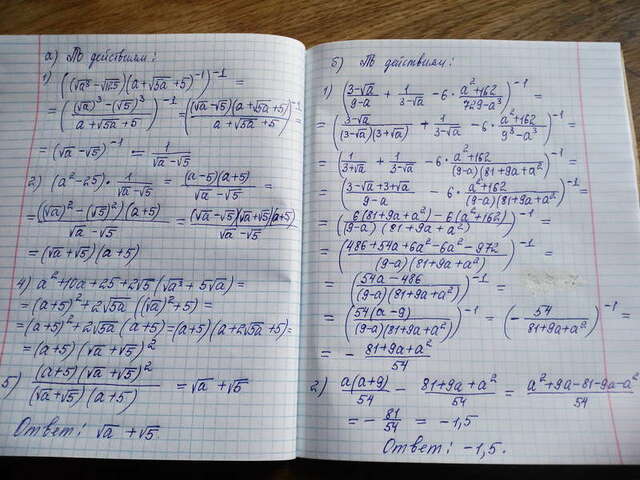 а) По действиям:
1) ((√a³ - √125)(a + √5a + 5)⁻¹)⁻¹ =
= ((√a)³ - (√5)³ / a + √5a + 5)⁻¹ = ((√a - √5)(a + √5a + 5) / a + √5a + 5)⁻¹ =
= (√a - √5)⁻¹ = 1 / √a - √5
2) (a² - 25) · 1 / √a - √5 = (a - 5)(a + 5) / √a - √5 =
= ((√a)² - (√5)²)(a + 5) / √a - √5 = (√a - √5)(√a + √5)(a + 5) / √a - √5 =
= (√a + √5)(a + 5)
4) a² + 10a + 25 + 2√5(√a³ + 5√a) =
= (a + 5)² + 2√5a((√a)² + 5) =
= (a + 5)² + 2√5a(a + 5) = (a + 5)(a + 2√5a + 5) =
= (a + 5)(√a + √5)²
5) (a + 5)(√a + √5)² / (√a + √5)(a + 5) = √a + √5
Ответ: √a + √5.
б) По действиям:
1) (3 - √a / 9 - a + 1 / 3 - √a - 6 · a² + 162 / 729 - a³)⁻¹ =
= (3 - √a / (3 - √a)(3 + √a) + 1 / 3 - √a - 6 · a² + 162 / 9³ - a³)⁻¹ =
= (1 / 3 + √a + 1 / 3 - √a - 6 · a² + 162 / (9 - a)(81 + 9a + a²))⁻¹ =
= (3 - √a + 3 + √a / 9 - a - 6 · a² + 162 / (9 - a)(81 + 9a + a²))⁻¹ =
= (6(81 + 9a + a²) - 6(a² + 162) / (9 - a)(81 + 9a + a²))⁻¹ =
= (486 + 54a + 6a² - 6a² - 972 / (9 - a)(81 + 9a + a²))⁻¹ =
= (54a - 486 / (9 - a)(81 + 9a + a²))⁻¹ =
= (54(a - 9) / (9 - a)(81 + 9a + a²))⁻¹ = (- 54 / 81 + 9a + a²)⁻¹ =
= - 81 + 9a + a² / 54
2) a(a + 9) / 54 - 81 + 9a + a² / 54 = a² + 9a - 81 - 9a - a² / 54
= - 81 / 54 = -1,5
Ответ: -1,5.